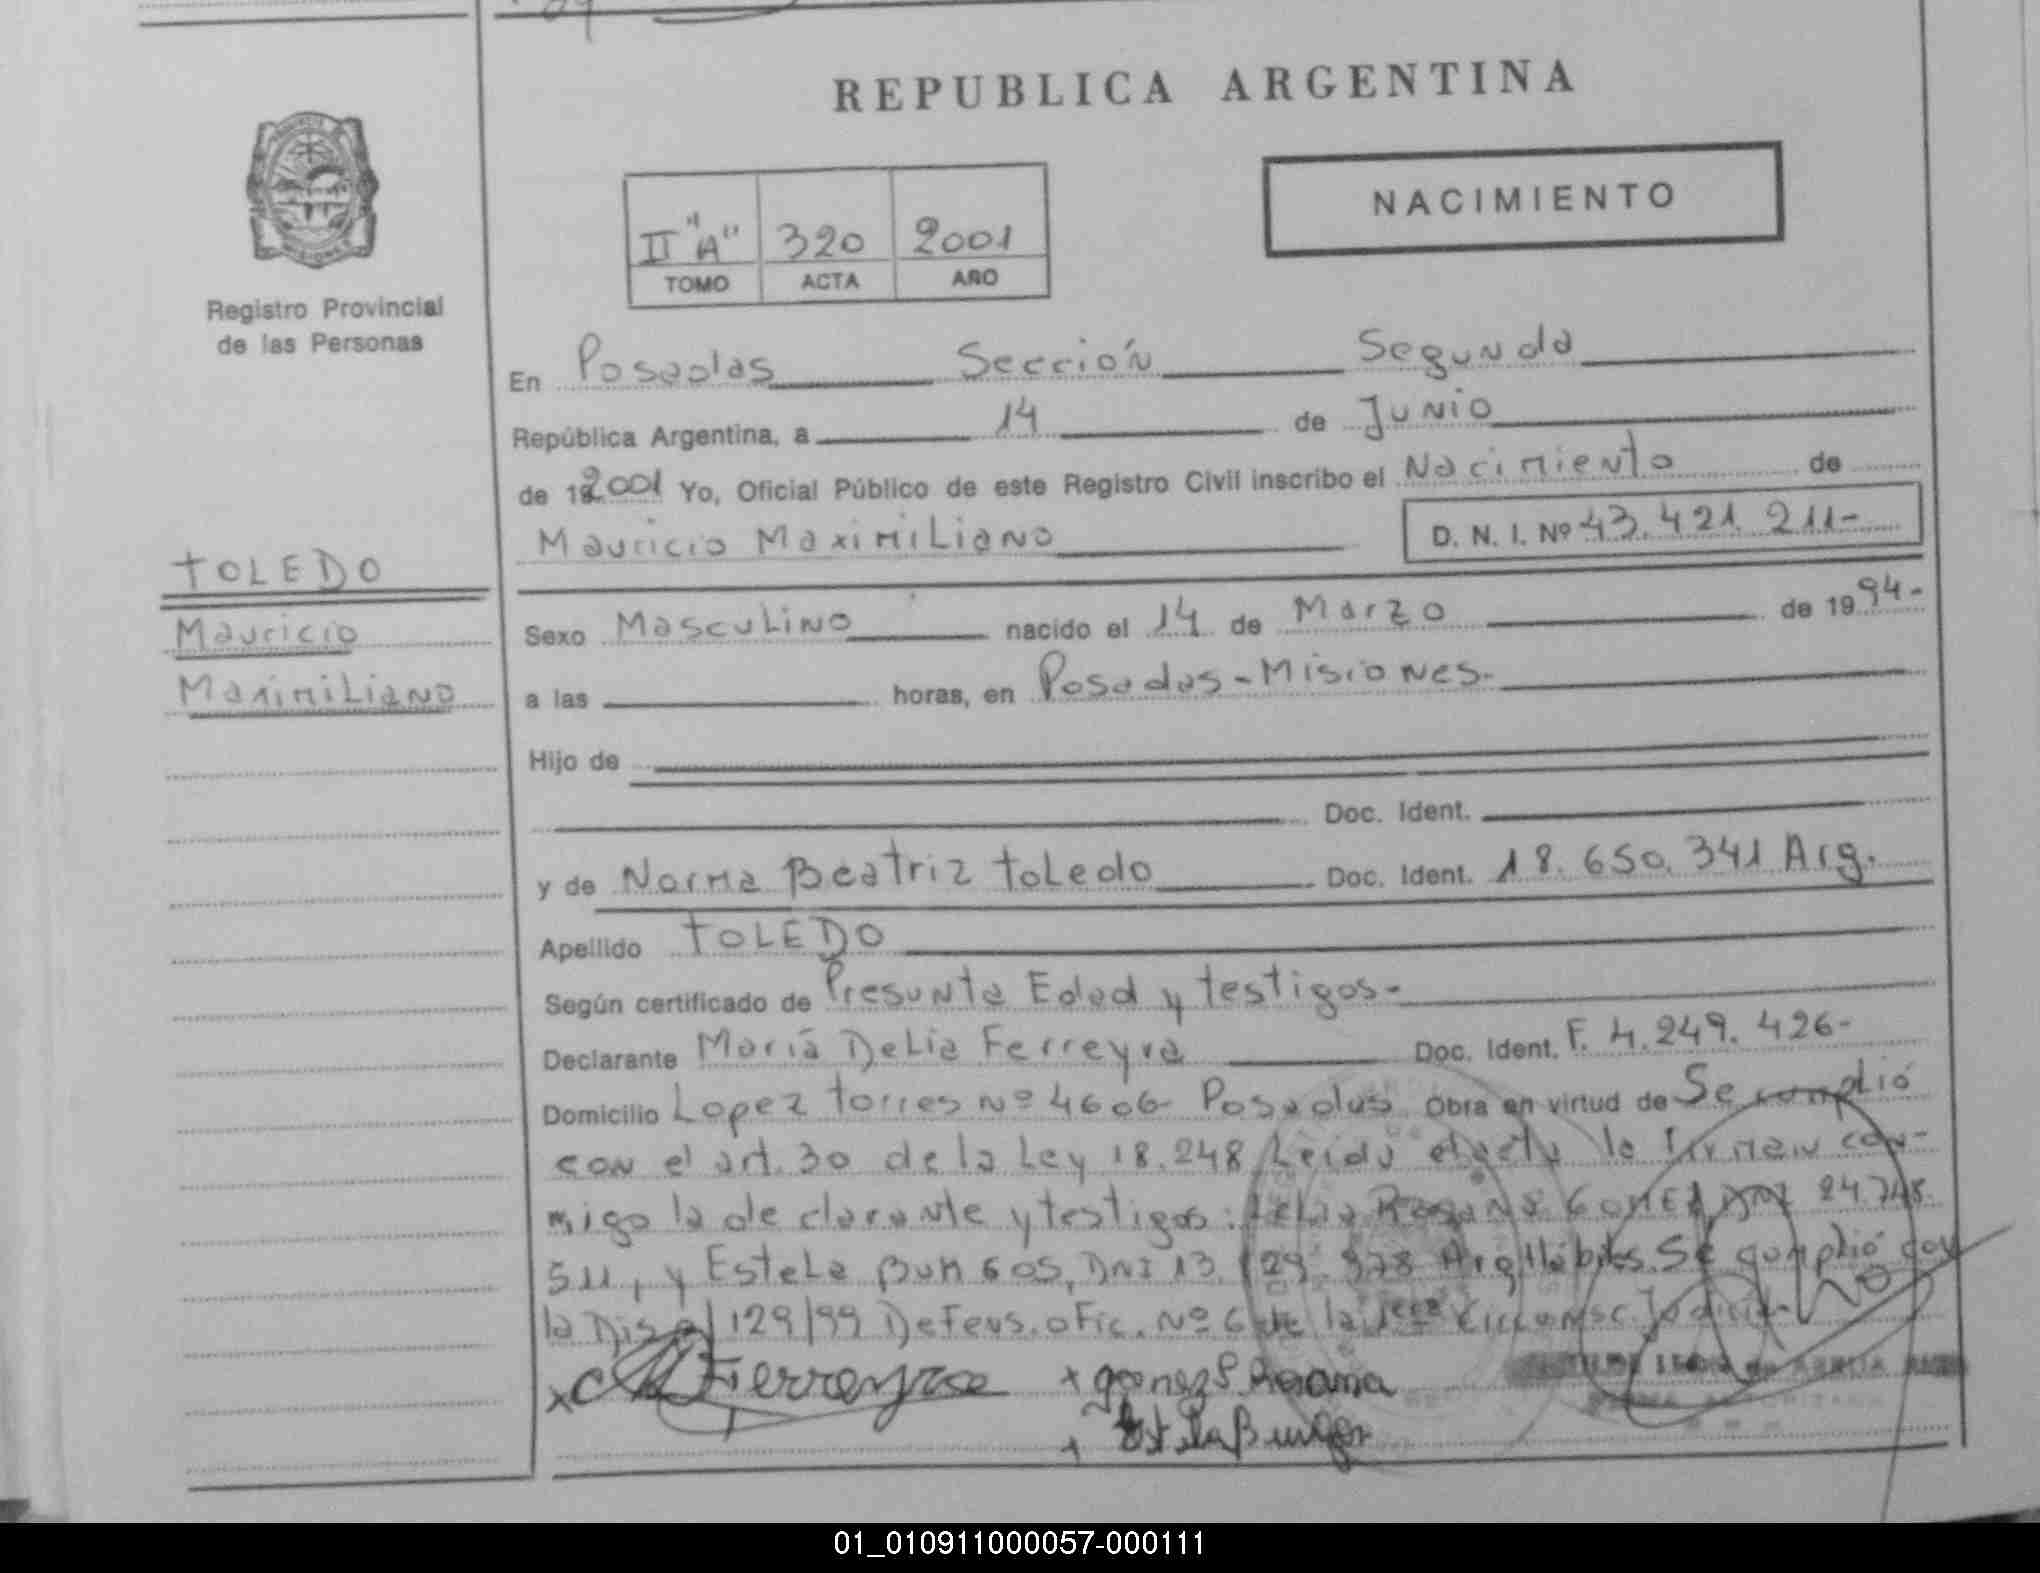 REPUBLICA ARGENTINA
NACIMIENTO
II "A" 320 2001
TOMO ACTA AÑO
Registro Provincial
de las Personas
En Posadas Sección Segunda
República Argentina, a 14 de Junio
de 192001 Yo, Oficial Público de este Registro Civil inscribo el Nacimiento de
Mauricio Maximiliano D. N. I. Nº 43.421.211-
TOLEDO
Mauricio
Maximiliano
Sexo Masculino nacido el 14 de Marzo de 1994-
a las horas, en Posadas-Misiones-
Hijo de
Doc. Ident.
y de Norma Beatriz Toledo Doc. Ident. 18.650.341 Arg.
Apellido TOLEDO
Según certificado de Presunta Edad y testigos-
Declarante María Delia Ferreyra Doc. Ident. F. 4.249.426-
Domicilio Lopez Torres Nº 4606- Posadas Obra en virtud de Se cumplió
con el art. 30 de la Ley 18.248 Leída el acta la firman con-
migo la declarante y testigos: Rosana Gomez DNI 24.748.
511, y Estela DNI 13. Arg Hábiles. Se cumplió con
la Disp 129/99 Defens. Ofic. Nº 6 de la 1era Circunsc. Judicial-
x Ferreyra + gomez Rosana
+ Estela
01_010911000057-000111